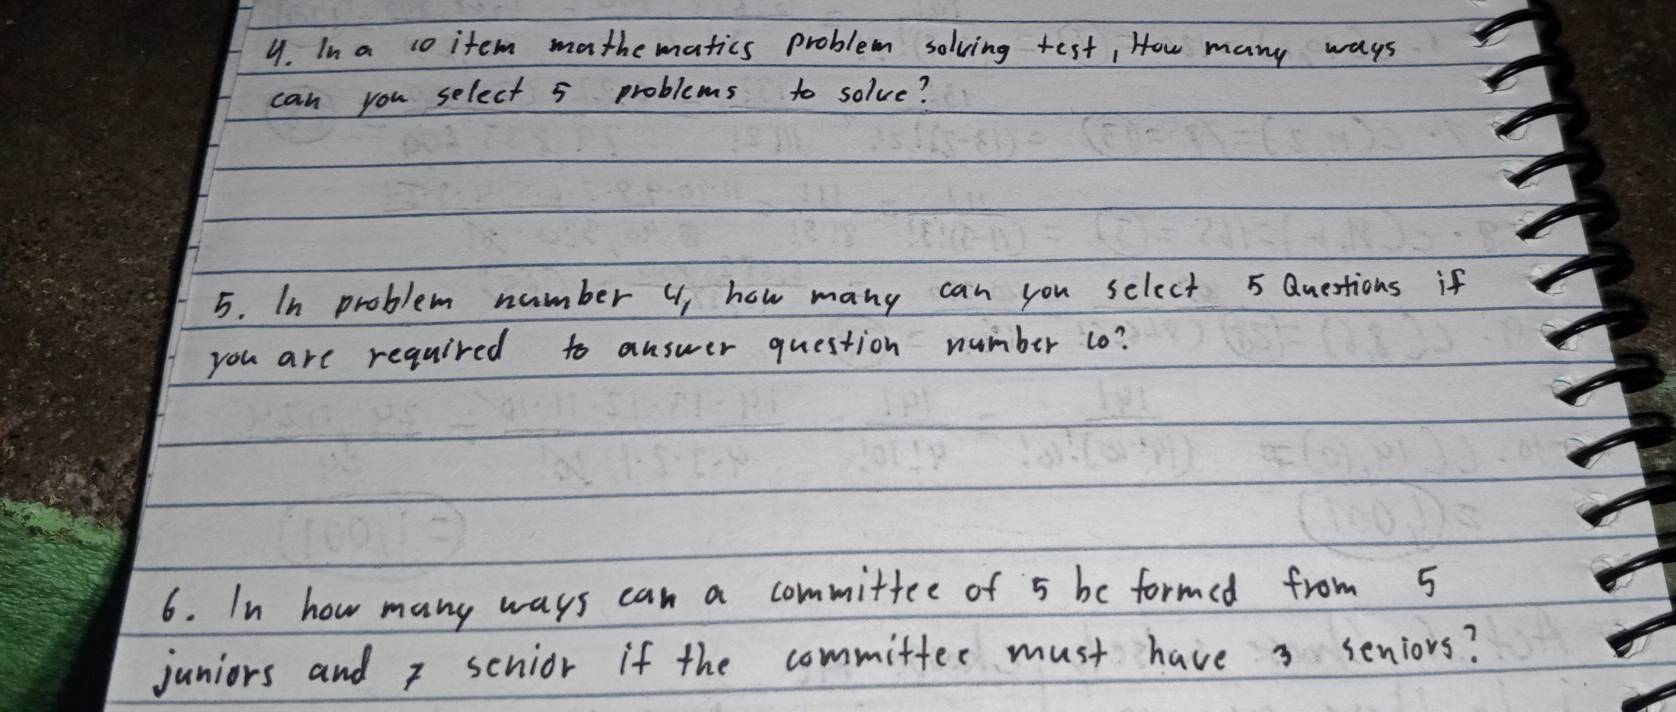 4. In a 10 item mathematics problem solving test, How many ways
can you select 5 problems to solve?
5. In problem number 4, how many can you select 5 Questions if
you are required to answer question number 10?
6. In how many ways can a committee of 5 be formed from 5
juniors and 7 senior if the committee must have 3 seniors?